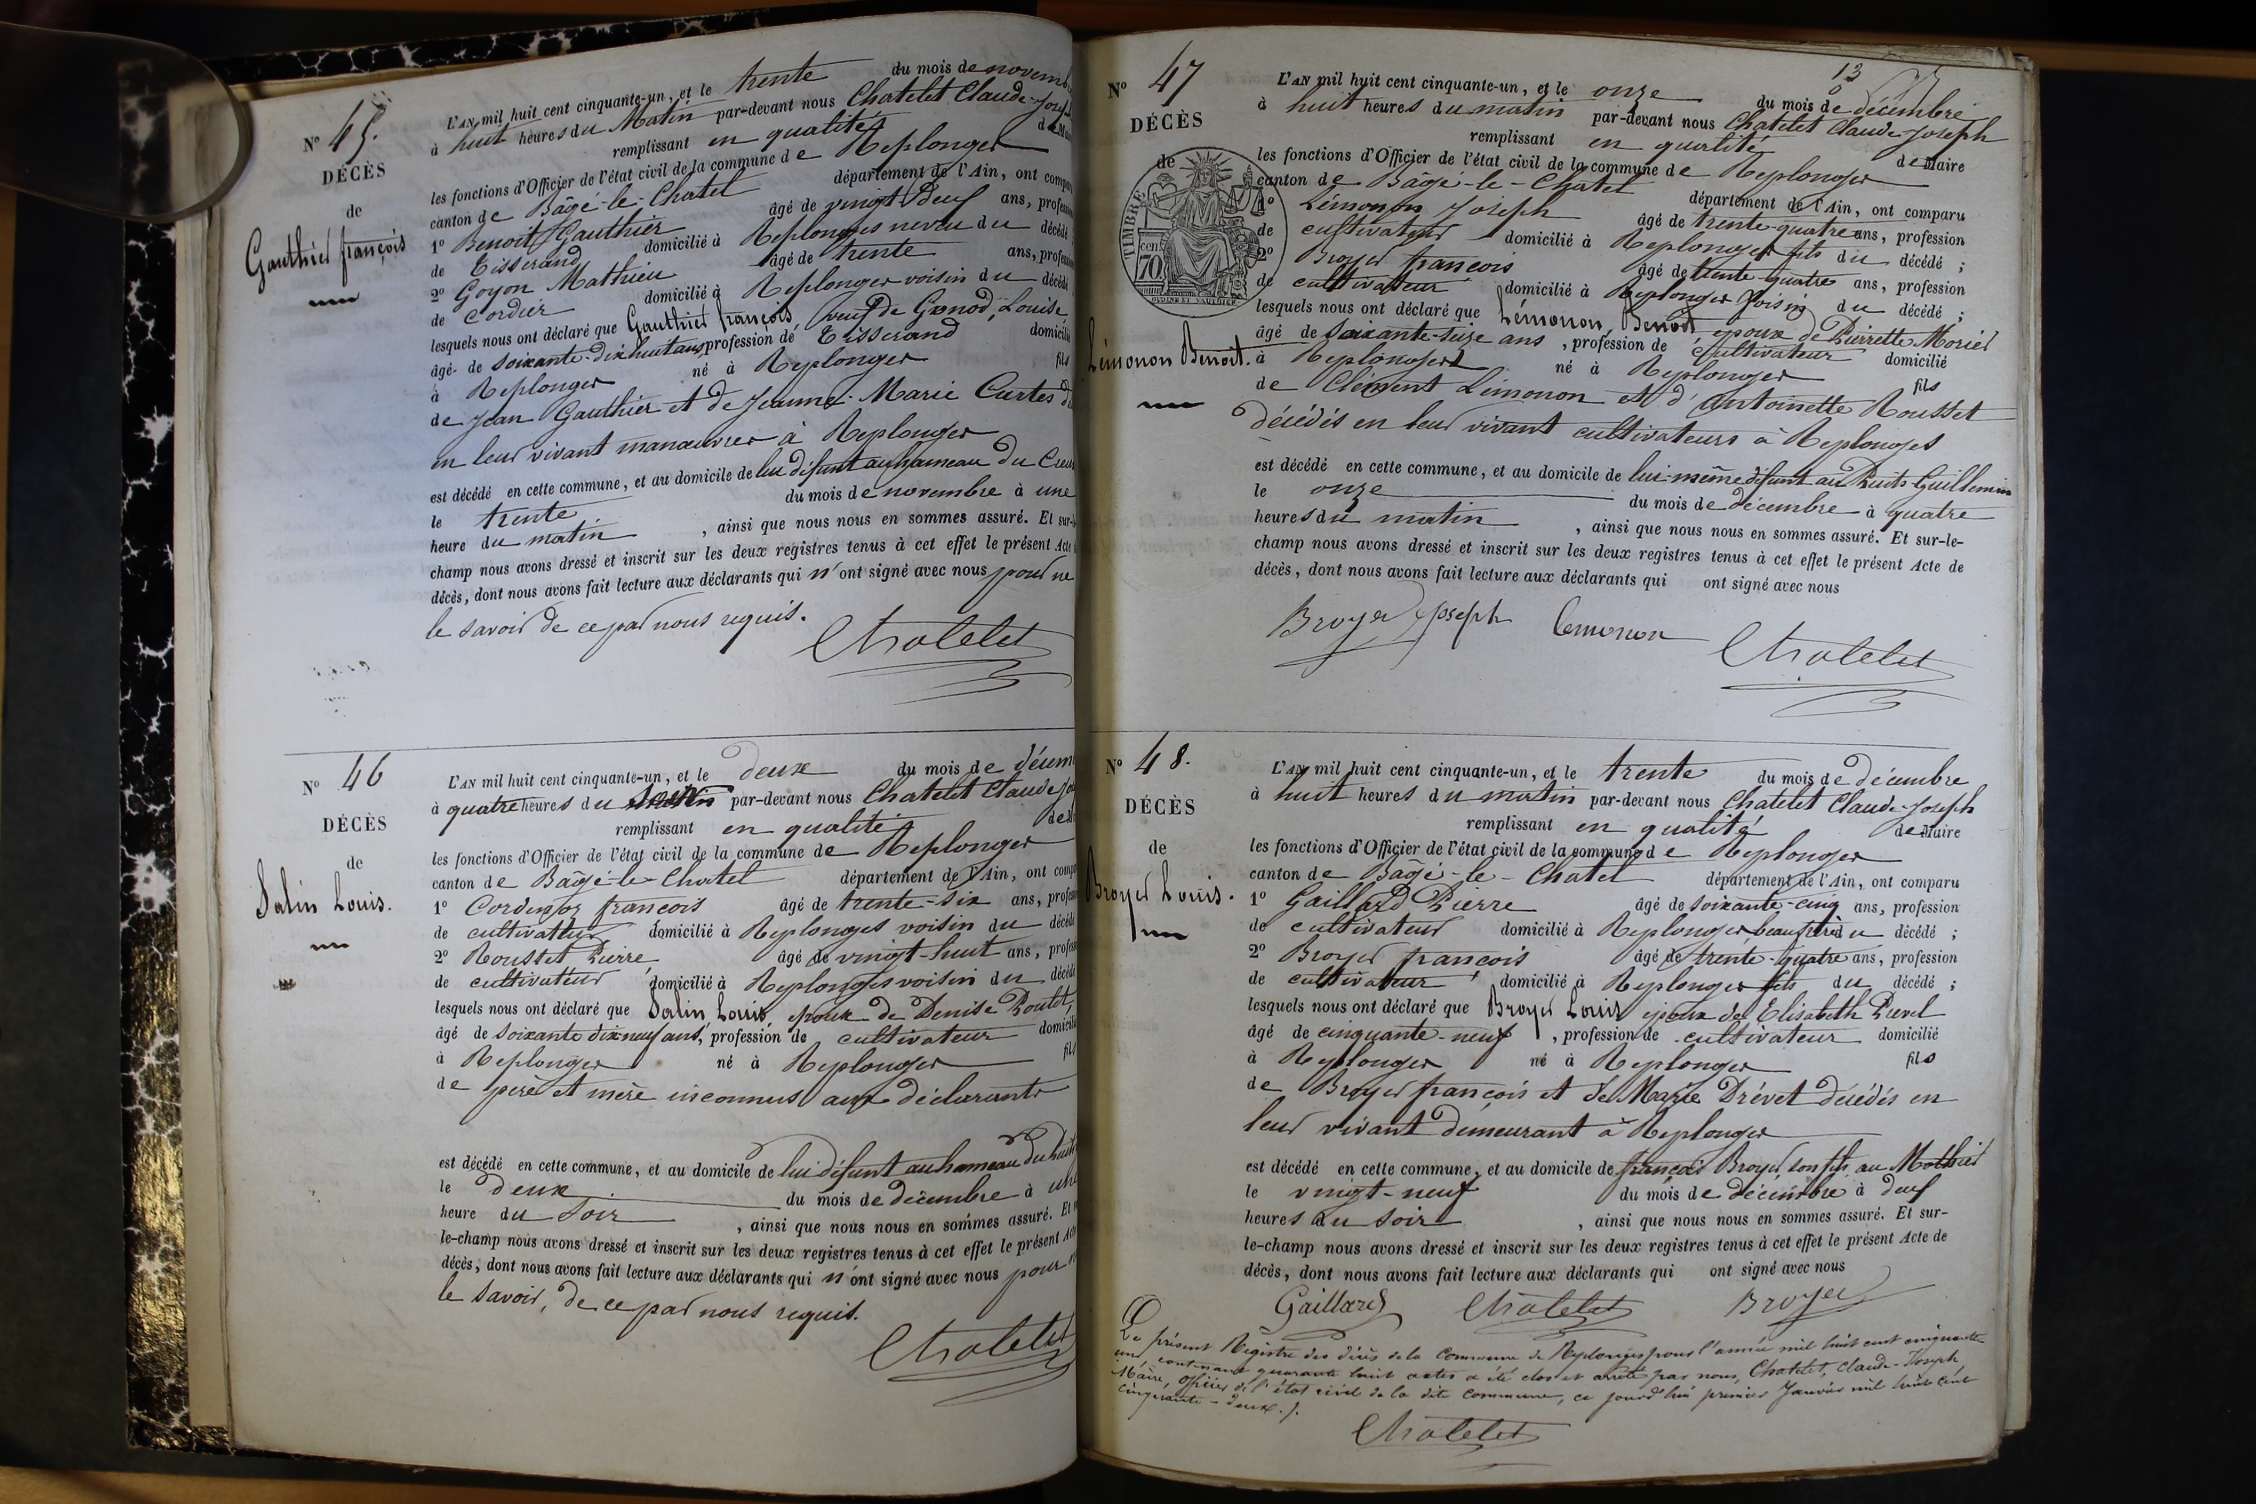 Nº 45.
DÉCÈS
de
Gauthier françois
L'AN mil huit cent cinquante-un, et le trente du mois de novemb
à huit heures du Matin par-devant nous Chatelet Claude-Jose
remplissant en qualité de Mai
les fonctions d'Officier de l'état civil de la commune de Replonges
canton de Bâgé-le-Chatel département de l'Ain, ont compa
1º Benoit Gauthier âgé de vingt Deux ans, profession
de Tisserand domicilié à Replonges neveu du décédé
2º Goyon Mathieu âgé de trente ans, profession
de Cordier domicilié à Replonges voisin du décédé
lesquels nous ont déclaré que Gauthier françois veuf de Genod Louise
âgé de soixante-dix huit ans profession de Tisserand domicilié
à Replonges né à Replonges fils
de Jean Gauthier et de Jeanne-Marie Curtes
en leur vivant manœuvres à Replonges
est décédé en cette commune, et au domicile de lui défunt au hameau du Creux
le trente du mois de novembre à une
heure du matin, ainsi que nous nous en sommes assuré. Et sur-le
champ nous avons dressé et inscrit sur les deux registres tenus à cet effet le présent Acte
décès, dont nous avons fait lecture aux déclarants qui n'ont signé avec nous pour ne
le savoir de ce par nous requis.
Chatelet
Nº 46
DÉCÈS
de
Salin Louis.
L'AN mil huit cent cinquante-un, et le deux du mois de décem
à quatre heures du soir par-devant nous Chatelet Claude Jo
remplissant en qualité de M
les fonctions d'Officier de l'état civil de la commune de Replonges
canton de Bâgé-le-Chatel département de l'Ain, ont comp
1º Cordenoz francois âgé de trente-six ans, profes
de cultivateur domicilié à Replonges voisin du décédé
2º Rousset Pierre âgé de vingt-huit ans, profess
de cultivateur domicilié à Replonges voisin du décédé
lesquels nous ont déclaré que Salin Louis, époux de Denise Poulet,
âgé de soixante dix neuf ans, profession de cultivateur domicilié
à Replonges né à Replonges fils
de père et mère inconnus aux déclarants
est décédé en cette commune, et au domicile de lui défunt au hameau du
le deux du mois de décembre à une
heure du soir, ainsi que nous nous en sommes assuré. Et
le-champ nous avons dressé et inscrit sur les deux registres tenus à cet effet le présent Acte
décès, dont nous avons fait lecture aux déclarants qui n'ont signé avec nous pour
le savoir, de ce par nous requis.
Chatelet
13
Nº 47
DÉCÈS
de
TIMBRE
70
cen
Lémonon Benoit.
L'AN mil huit cent cinquante-un, et le onze du mois de décembre
à huit heures du matin par-devant nous Chatelet Claude Joseph
remplissant en qualité de Maire
les fonctions d'Officier de l'état civil de la commune de Replonges
canton de Bâgé-le-Chatel département de l'Ain, ont comparu
1º Lémonon Joseph âgé de trente-quatre ans, profession
de cultivateur domicilié à Replonges fils du décédé ;
2º Broyer francois âgé de trente-quatre ans, profession
de cultivateur domicilié à Replonges voisin du décédé ;
lesquels nous ont déclaré que Lémonon Benoit, époux de Pierrette Morier
âgé de soixante-seize ans, profession de cultivateur domicilié
à Replonges né à Replonges fils
de Clément Lémonon et d'Antoinette Rousset
décédés en leur vivant cultivateurs à Replonges
est décédé en cette commune, et au domicile de lui-même défunt au Puits Guillemin
le onze du mois de décembre à quatre
heures du matin, ainsi que nous nous en sommes assuré. Et sur-le-
champ nous avons dressé et inscrit sur les deux registres tenus à cet effet le présent Acte de
décès, dont nous avons fait lecture aux déclarants qui ont signé avec nous
Broyer Joseph Lemonon
Chatelet
Nº 48.
DÉCÈS
de
Broyer Louis.
L'AN mil huit cent cinquante-un, et le trente du mois de décembre
à huit heures du matin par-devant nous Chatelet Claude-Joseph
remplissant en qualité de Maire
les fonctions d'Officier de l'état civil de la commune de Replonges
canton de Bâgé-le-Chatel département de l'Ain, ont comparu
1º Gaillard Pierre âgé de soixante-cinq ans, profession
de cultivateur domicilié à Replonges beau frère du décédé ;
2º Broyer francois âgé de trente-quatre ans, profession
de cultivateur domicilié à Replonges fils du décédé ;
lesquels nous ont déclaré que Broyer Louis époux de Elisabeth Prevel
âgé de cinquante-neuf, profession de cultivateur domicilié
à Replonges né à Replonges fils
de Broyer françois et de Marie Drévet décédés en
leur vivant demeurant à Replonges
est décédé en cette commune, et au domicile de françois Broyer son fils au Mothier
le vingt-neuf du mois de décembre à deux
heures du soir, ainsi que nous nous en sommes assuré. Et sur-
le-champ nous avons dressé et inscrit sur les deux registres tenus à cet effet le présent Acte de
décès, dont nous avons fait lecture aux déclarants qui ont signé avec nous
Gaillard Chatelet Broyer
Le présent Régistre des décès de la Commune de Replonges pour l'année mil huit cent cinquante
un, contenant quarante huit actes a été clos et arrêté par nous, Chatelet, Claude-Joseph,
Maire, officier de l'état civil de la dite Commune, ce jourd'hui premier Janvier mil huit cent
cinquante-deux ./.
Chatelet